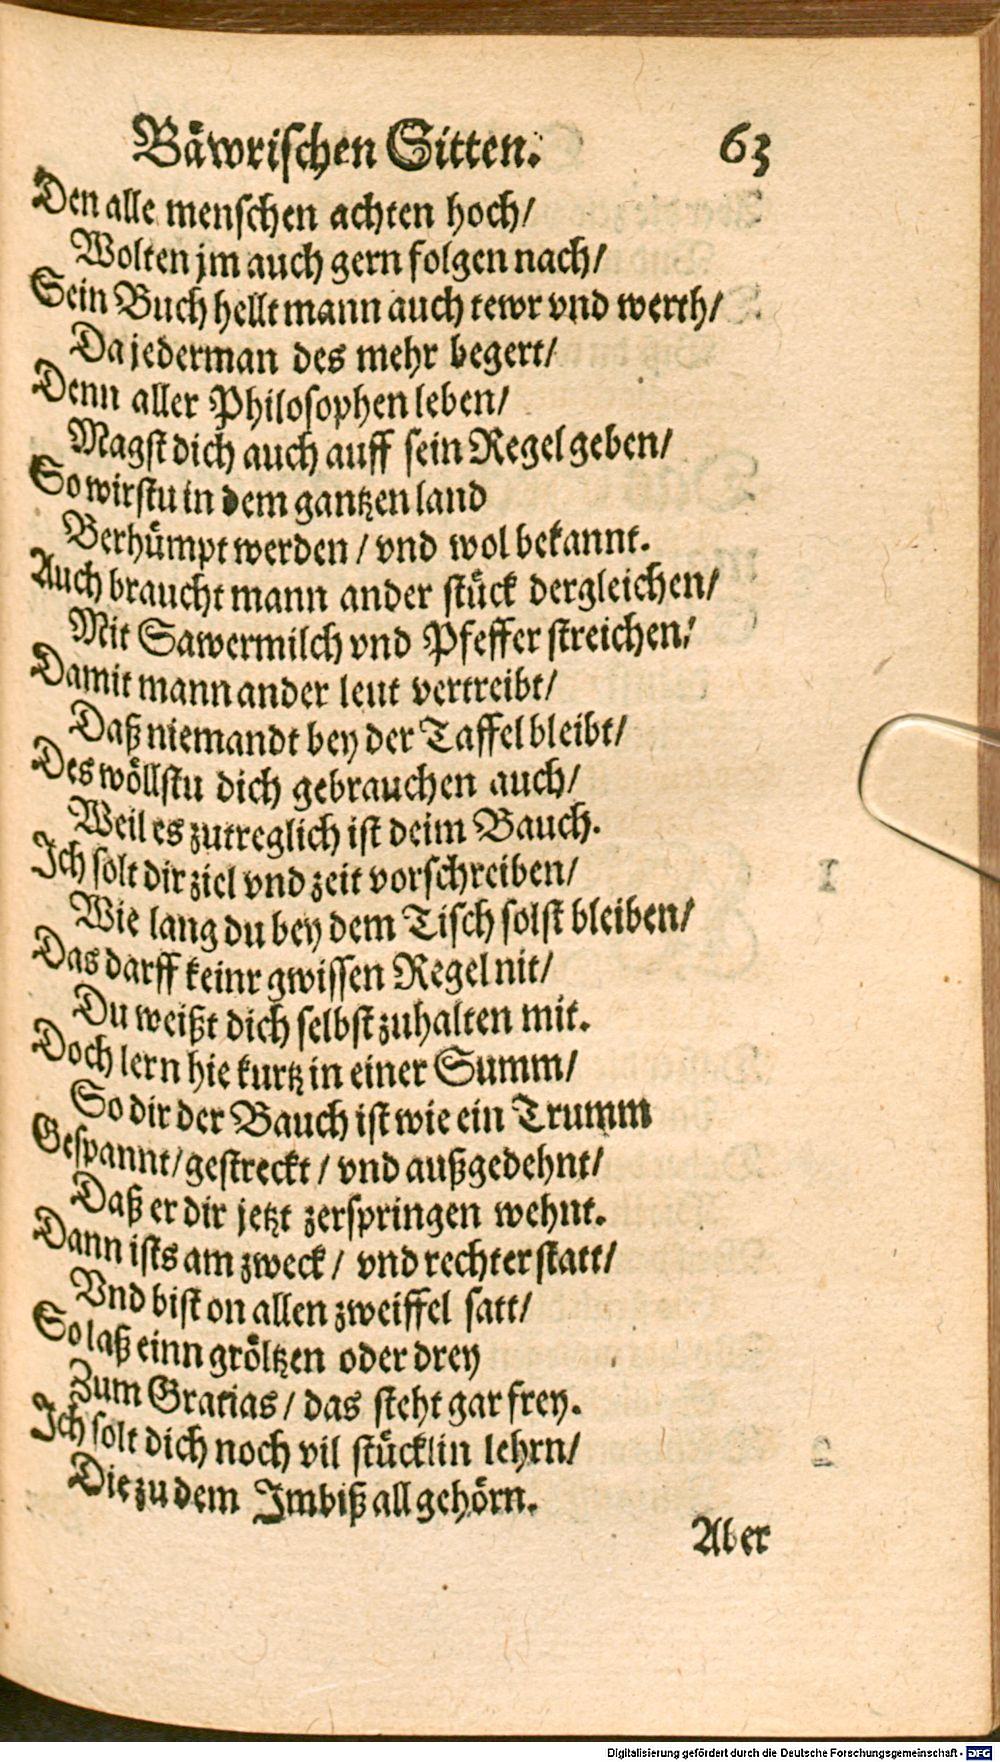 Bäwrischen Sitten. 63
Den alle menschen achten hoch/
Wolten jm auch gern folgen nach/
Sein Buch hellt mann auch tewr vnd werth/
Da jederman des mehr begert/
Denn aller Philosophen leben/
Magst dich auch auff sein Regel geben/
So wirstu in dem gantzen land
Berhümpt werden / vnd wol bekannt.
Auch braucht mann ander stück dergleichen/
Mit Sawermilch vnd Pfeffer streichen/
Damit mann ander leut vertreibt/
Daß niemandt bey der Taffel bleibt/
Des wöllstu dich gebrauchen auch/
Weil es zutreglich ist deim Bauch.
Ich solt dir ziel vnd zeit vorschreiben/
Wie lang du bey dem Tisch solst bleiben/
Das darff keinr gwissen Regel nit/
Du weißt dich selbst zuhalten mit.
Doch lern hie kurtz in einer Summ/
So dir der Bauch ist wie ein Trumm
Gespannt/ gestreckt / vnd außgedehnt/
Daß er dir jetzt zerspringen wehnt.
Dann ists am zweck / vnd rechter statt/
Vnd bist on allen zweiffel satt/
So laß einn gröltzen oder drey
Zum Gratias / das steht gar frey.
Ich solt dich noch vil stücklin lehrn/
Die zu dem Imbiß all gehörn.
Aber
Digitalisierung gefördert durch die Deutsche Forschungsgemeinschaft - DFG